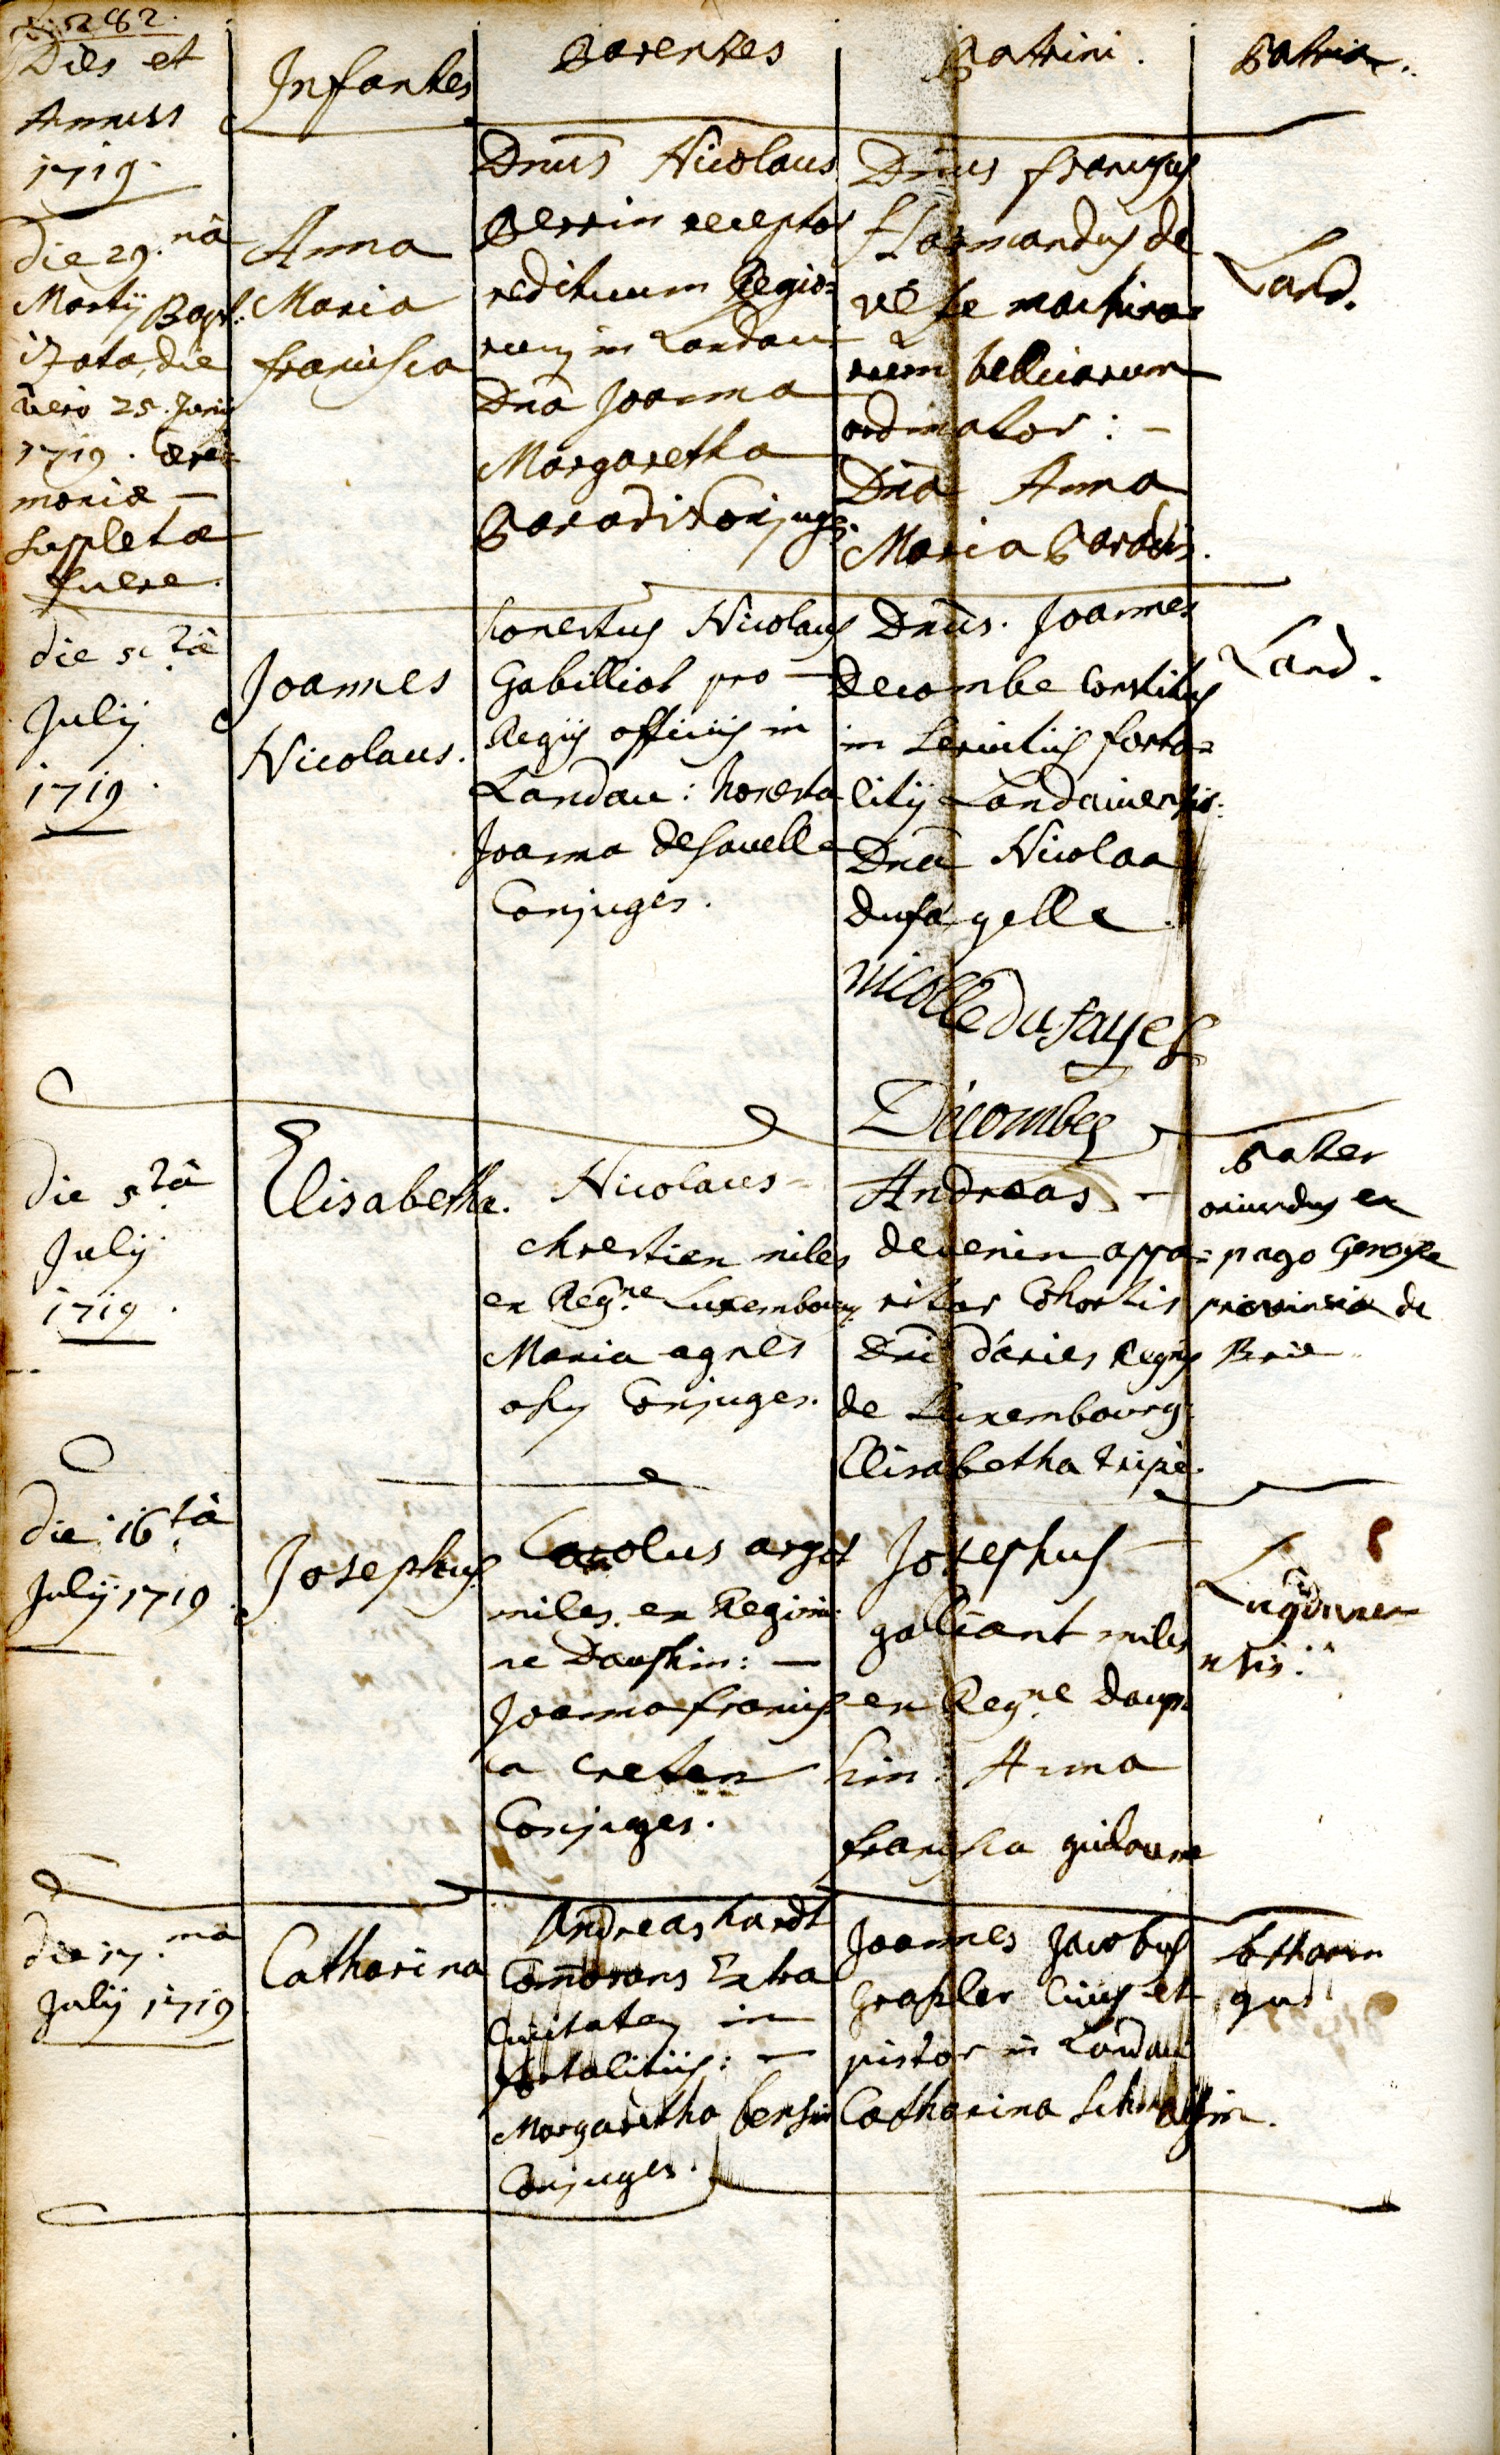 282.
Dies et
Annus
1719.
Infantes
Parentes
Patrini.
Patria.
die 29.nâ
Martij Bapt:
izata, die
vero 25. Junij
1719. Cere:
moniæ —
suppletæ
fuere.
Anna
Maria
francisca
Dnus Nicolaus
Perrin receptor
redituum Regio=
rum in Landau
Dna Joanna
Margaretha
Paradis Conjuges.
Dnus franciscus
flormandus de
machina=
rum bellicarum
ordinator: —
Dna Anna
Maria Paradis.
Land.
die 5.tâ
Julij
1719.
Joannes
Nicolaus.
honestus Nicolaus
Gabilliot pro —
Regijs officiis in
Landau: honesta
Joanna desavelle
Conjuges.
Dnus. Joannes
Decombe
in forta=
litij Landaviensis:
Dna Nicolaa
dufa yelle.
nicolle du fayel
Decombes
Land.
die 5tâ
Julij
1719.
Elisabetha.
Nicolaus
chrestien miles
ex Reg.ne Luxembourg
Maria agnes
Conjuges.
Andreas —
devenin appa:
ritor Cohortis
Dni d'aries Regnis
de Luxembourg
Elisabetha tripié.
Pater
oriundus ex
pago
provincia de
Brie
die 16tâ
Julij 1719.
Josephus
Carolus arget
miles ex Regimi:
ne Dauphin: —
Joanna francis
ca creten
Conjuges.
Josephus —
galliant miles
ex Reg.ne daup
hin. Anna
francisca guilaume
Lugdune
nsis.
die 17.ma
Julij 1719
Catharina
Andreas hardt
Comorans Extra
Civitatem in
fortalitiis: —
Margaretha
Conjuges.
Joannes Jacobus
Grassler Civis et
pistor in Landau
Catharina
Lotharin
gus